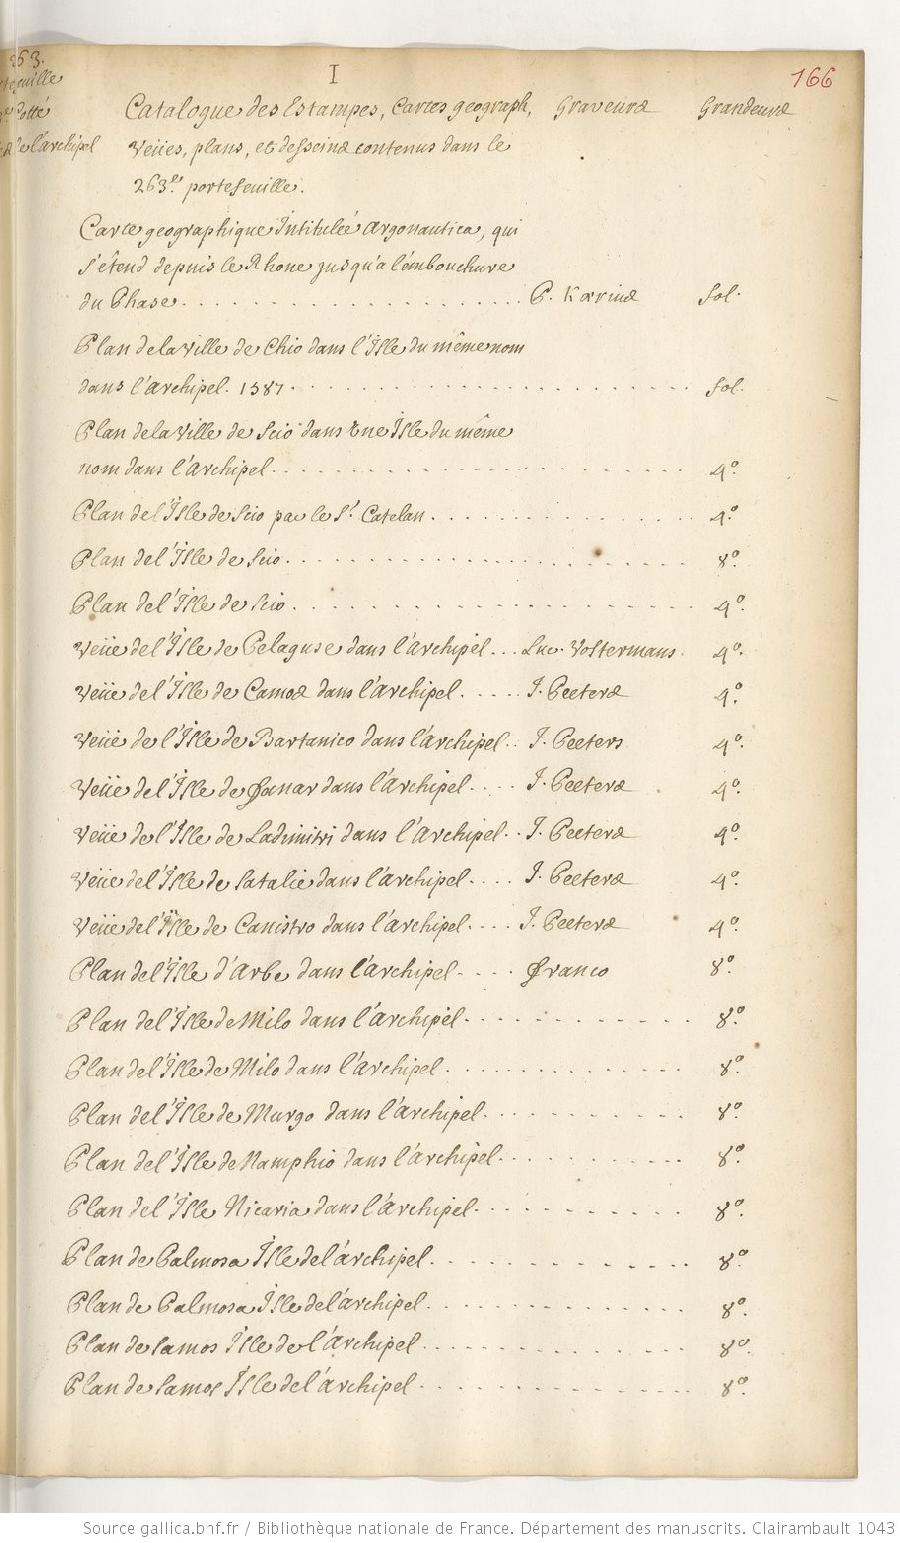 I
166
263.
Catalogue des Estampes, Cartes geograph, Graveurs Grandeurs
Veües, plans, et desseins contenus dans le
263.e portefeuille.
de l'archipel
Carte geographique Intitulée argonautica, qui
s'étend depuis le Rhone jusqu'a l'émbouchure
du Phase. . . . . P. Kærius fol.
Plan de la Ville de Chio dans l'Isle du même nom
dans l'archipel. 1587. . . . . fol.
Plan de la Ville de Scio dans Une Isle du même
nom dans l'Archipel. . . . . 4.o
Plan de l'Isle de Scio par le Sr. Catelan. . . . . 4.o
Plan de l'Isle de Scio. . . . . 8.o
Plan de l'Isle de Scio. . . . . 4.o
Veüe de l'Isle de Pelaguse dans l'Archipel. . . Luc. Vostermans. 4.o
Veüe de l'Isle de Camos dans l'archipel. . . . . J. Peeters 4.o
Veüe de l'Isle de Bartanico dans l'archipel. . J. Peeters 4.o
Veüe de l'Isle de Fanar dans l'Archipel. . . . J. Peeters 4.o
Veüe de l'Isle de Ladimitri dans l'Archipel. . J. Peeters 4.o
Veüe de l'Isle de Satalie dans l'archipel. . . . J. Peeters 4.o
Veüe de l'Isle de Canistro dans l'archipel. . . . J. Peeters 4.o
Plan de l'Isle d'Arbe dans l'archipel. . . . Franco 8.o
Plan de l'Isle de Milo dans l'archipel. . . . . 8.o
Plan de l'Isle de Milo dans l'archipel. . . . . 8.o
Plan de l'Isle de Murgo dans l'archipel. . . . . 8.o
Plan de l'Isle de Namphio dans l'archipel. . . . . 8.o
Plan de l'Isle Nicaria dans l'archipel. . . . . 8.o
Plan de Palmosa Isle de l'archipel. . . . . 8.o
Plan de Palmosa Isle de l'archipel. . . . . 8.o
Plan de Samos Isle de l'Archipel. . . . . 8.o
Plan de Samos Isle de l'archipel. . . . . 8.o
Source gallica.bnf.fr / Bibliothèque nationale de France. Département des manuscrits. Clairambault 1043